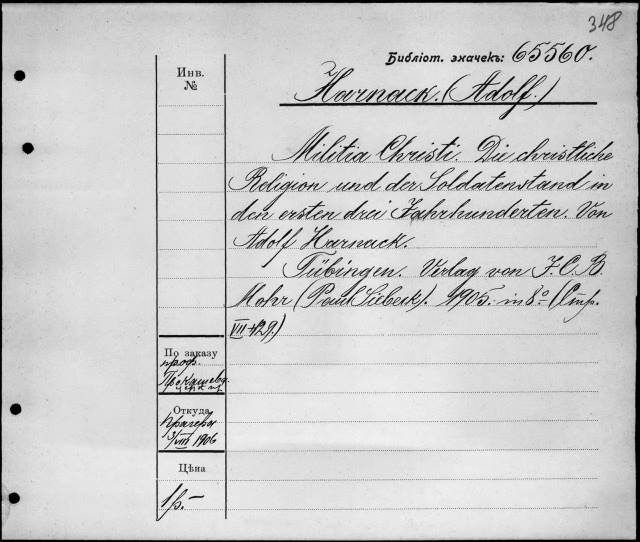 348
Библіот. значекъ: 65560.
Инв.
№
Harnack. (Adolf.)
Militia Christi. Die christliche
Religion und der Soldatenstand in
den ersten drei Jahrhunderten. Von
Adolf Harnack.
Tübingen. Verlag von J. C. B.
Mohr (Paul Siebeck). 1905. in 8º (Стр.
VII+129.)
По заказу
проф.
Откуда
3/VIII 1906
Цѣна
1 р. –